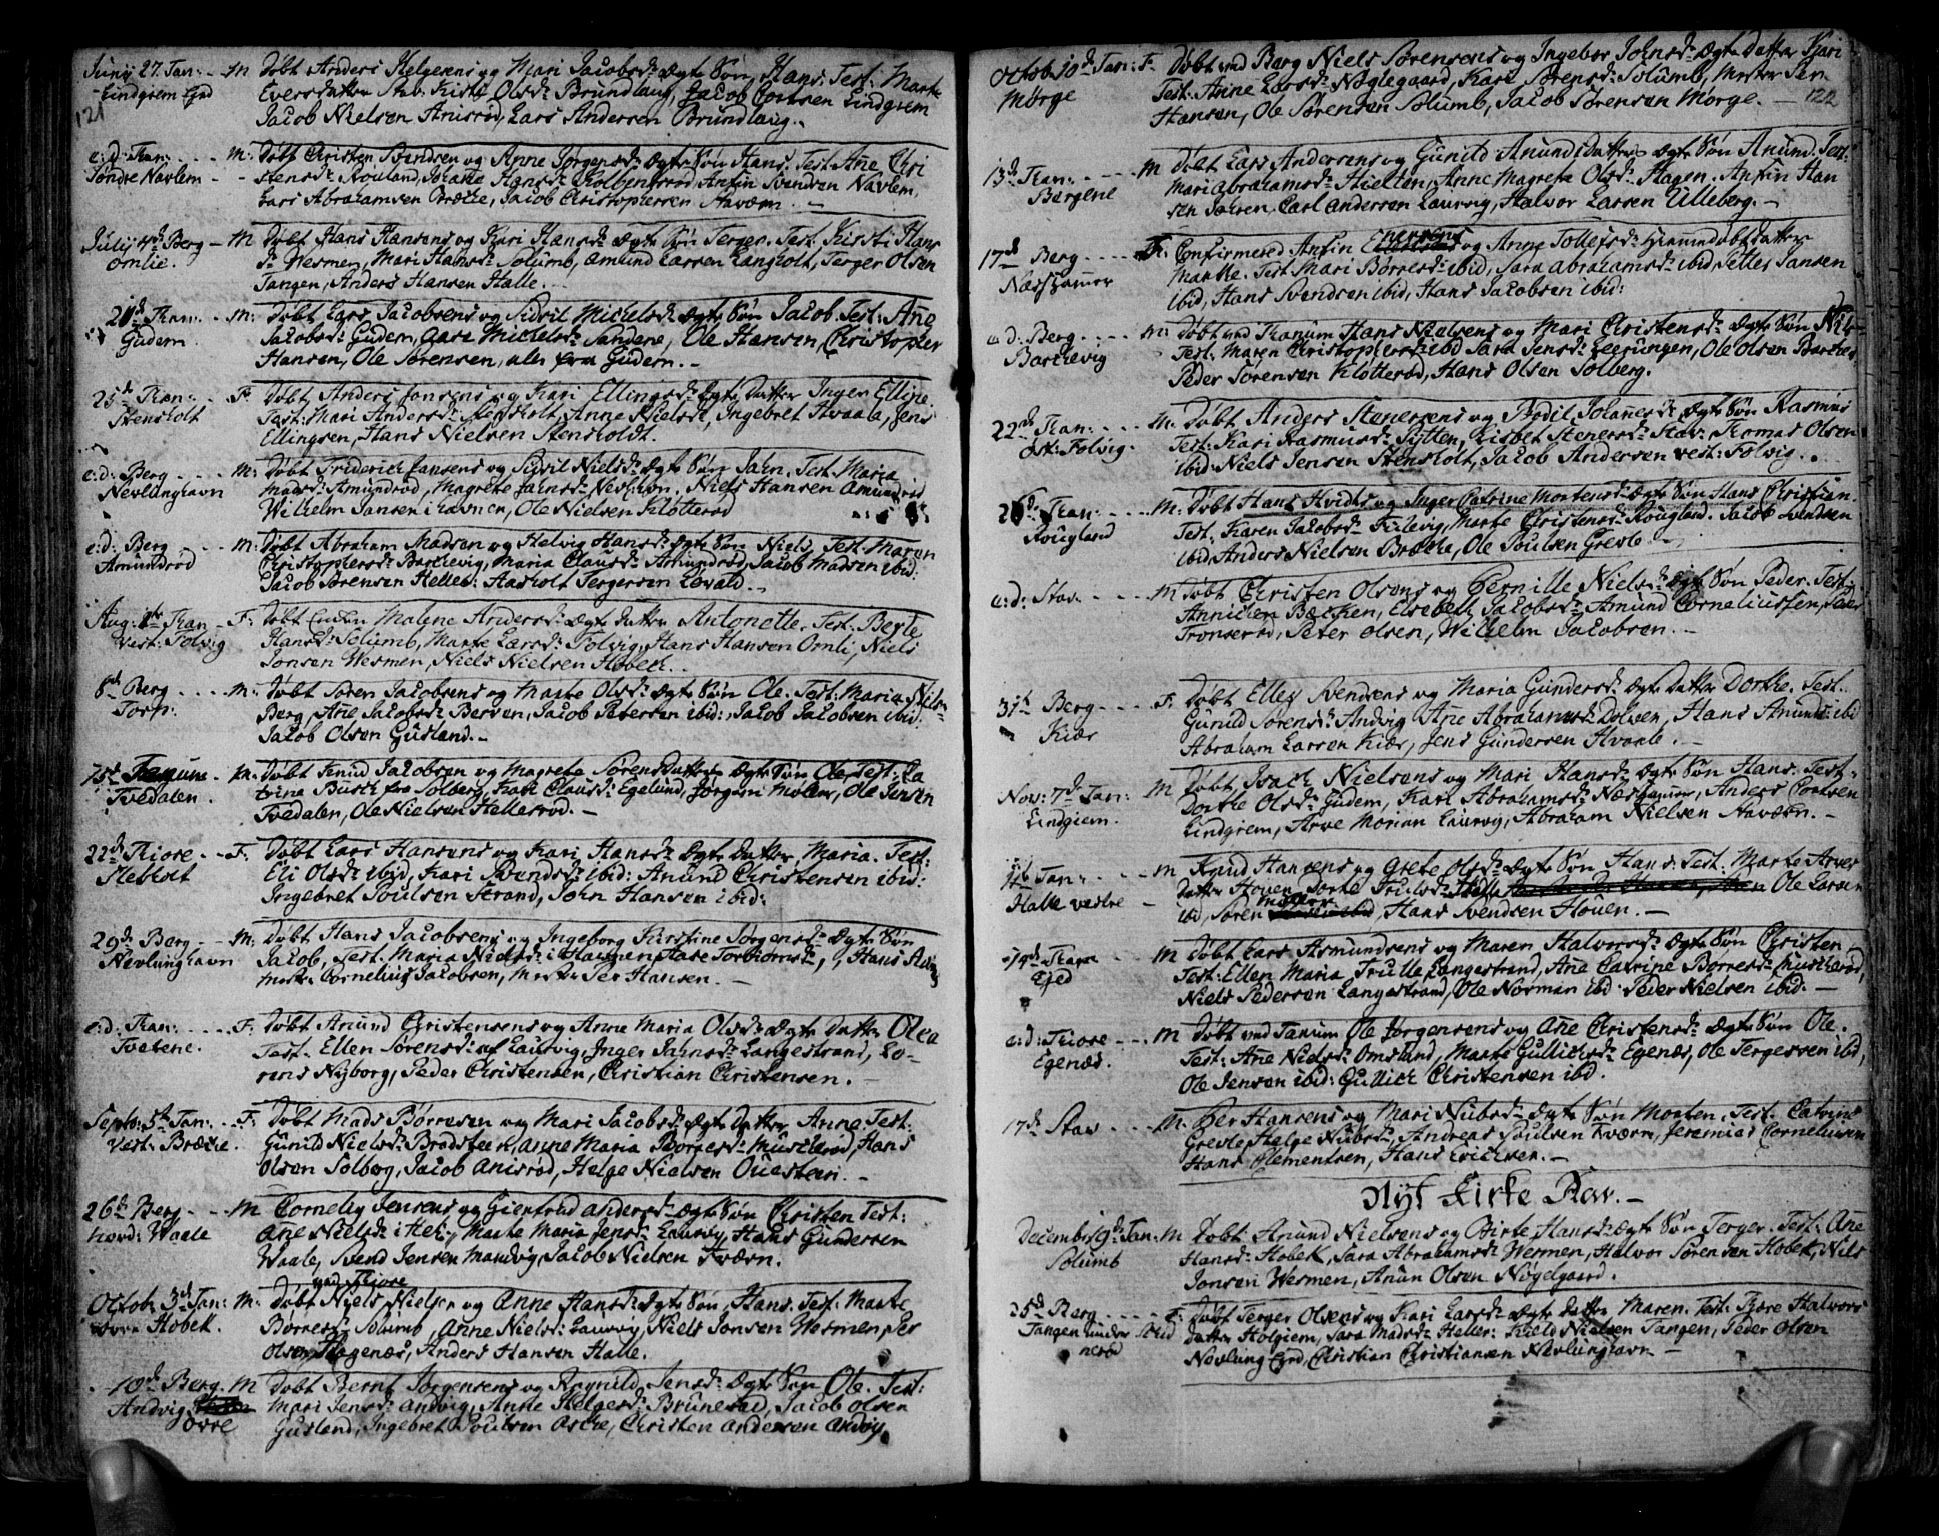 121
Juny 27. Tan: - M Døbt Anders Helgesens og Mari Jacobsd: Ægte Søn, Hans. Test: Marte
Lindgrem Ejed
Eversdatter Kirsti Olsd: Brundlaug, Jacob Lindgrem
Jacob Nielsen Anisrød, Lars Andersen Brundlaug.
e:d: Tan: - M: Døbt Christen Svendsen og Anne Jørgensd: Ægte Søn Hans. Test: Ane Chri
Søndre Navlem - stensd: Rougland, Hansd: Anfin Svendsen Navlem,
Lars Abrahamsen Bræcke, Jacob Christophersen Staværn. -
July Berg - M Døbt Hans Hansens og Kari Hansd: Ægte Søn Terger. Test: Kirsti Hans
Omlie. d: Wesmen, Mari Hansd: Solumb, Amund Larsen Langholt, Terger Olsen
Tangen, Anders Hansen Halle.
Tan: - M: Døbt Lars Jacobsens og Sidsil Michelsd: Ægte Søn Jacob. Test: Ane
Gudem Jacobsd: Gudem, Aase Michelsd: Sandene, Ole Hansen, Christopher
Hansen, Ole Sørensen, alle fra Gudem. -
25d Tan: - F: Døbt Anders Jonsens og Kari Ellingsd: Ægte Datter Inger Elline.
Stensholt Test: Mari Andersd: Stensholt, Anne Nielsd:, Ingebret Hvaale, Jens
Ellingsen, Hans Nielsen Stensholdt.
e:d: Berg - M: Døbt Friderich Jansens og Sidsil Nielsd: Ægte Søn Jahn. Test: Maria
Nevlunghavn Madsd: Amundrød, Magrete Jansd: Nevlhavn, Niels Hansen Amundrød
Wilhelm Jansen i havnen, Ole Nielsen Klotterød
e:d: Berg - M: Døbt Abraham Madsen og Helvig Hansd: Ægte Søn Niels. Test: Maren
Amundrød Christophersd: Barchevig, Maria Clausd: Amundrød, Jacob Madsen ibid:
Jacob Sørensen Helles: Aasholt Tergersen Lovald. -
Aug: Tan - F: Døbt Malene Andersd: Ægte Datter Antonette. Test: Berte
Vest: Folvig Hansd: Solumb, Marte Larsd: Folvig, Hans Hansen Omli, Niels
Jonsen Wesmen, Niels Nielsen Hobeck.
8d Berg - M: Døbt Søren Jacobsens og Marte Olsd: Ægte Søn Ole. Test: Maria Nilsd:
Torp: Berg, Ane Jacobsd: Bergen, Jacob Petersen ibid:, Jacob Jacobsen ibid:
Jacob Olsen Gusland. -
15d Tanum - M: Døbt Knud Jacobsen og Magrete Sørensdatter Ægte Søn Ole. Test: Ca
Tvedalen. trine Busch fra Solberg, Kari Clausd: Egelund, Jørgen Møller, Ole Jensen
Tvedalen, Ole Nielsen Hellerød. -
22d Kiose - F: Døbt Lars Hansens og Kari Hansd: Ægte Datter Maria. Test:
Sletholt Eli Olsd: ibid, Kari Svendsd: ibid: Anund Christensen ibid:
Ingebret Poulsen Strand, John Hansen ibid:
29d Berg - M: Døbt Hans Jacobsens og Ingeborg Kirstine Jørgensd: Ægte Søn
Nevlunghavn Jacob, Test. Maria Nielsd: i Havnen, Aase Torbiørnsd:, Hans
Cornelius Jacobsen, Per Hansen. -
e:d: Tan: - F: Døbt Anund Christensens og Anne Maria Olsd: Ægte Datter Olea
Tvetene. Test. Ellen Sørensd: af Laurvig, Inger Jahnsd: Langestrand, Lo-
rens Nyborg, Peder Christensen, Christian Christensen. -
Septb: 5t Tan: - F: Døbt Mads Børresen og Mari Jacobsd: Ægte Datter Anna. Test:
Vest: Bræcke. Gunild Nielsd: Bradsteen, Anne Maria Børgesd: Muslerød, Hans
Olsen Solberg, Jacob Anisrød, Helge Nielsen Ouesteen. -
26d Berg - M Cornelius Jensens og Giertrud Andersd: Ægte Søn Christen Test:
nord: Waale Ane Nielsd: i Hei:, Marte Maria Jensd: Laurvig, Hans Gundersen
Waale, Svend Jensen Manvig, Jacob Nielsen Kværn.
ved Kiose
Octob: 3d Tan: M: Døbt Niels Nielsen og Anne Hansd: Ægte Søn, Hans. Test: Marte
øvre Hobek. Børresd: Solumb, Anne Nielsd: Laurvig, Niels Jonsen Wesmen, Per
Olsen Hægenæs, Anders Hansen Halle.
10d Berg. M Døbt Bernt Jørgensens og Ragnild Jensd: Ægte Søn Ole. Test:
Andvig Mari Jensd: Andvig, Anne Helgesd: Brunestad, Jacob Olsen
øvre Gusland, Ingebret Poulsen Aske, Christen Andersen Andvig
Octob: 10d Tan: F. Døbt ved Berg Niels Sørensens og Ingebor Johnsd: Ægte Datter Kari
Mørge Test: Anne Larsd: Nøglegaard, Kari Sørensd: Solumb, Mester Per
Hansen, Ole Sørensen Solumb, Jacob Sørensen Mørge. - 122
13d Tan: - M Døbt Lars Andersens og Gunild Anunds Datter Ægte Søn Anund. Test:
Bergene Mari Abrahamsd: Hielten, Anne Magrete Olsd: Hagen, Anfin Han
sen Carl Andersen Laurvig, Halvor Larsen Ulleberg. -
17d Berg - F. Confirmered Anfin Enersens og Anne Tollefsd: hiemmedøbt Datter
Næshamer Marthe. Test. Mari Børresd: ibid, Sara Abrahamsd: ibid, Petter Jansen
ibid, Hans Svendsen ibid, Hans Jacobsen ibid:
e:d: Berg - M: Døbt ved Tanum Hans Nielsens og Mari Christensd: Ægte Søn Nils
Barchevig Test: Maren Christophersd: ibid Sara Jensd: Leerungen, Ole Olsen Barchev
Peder Sørensen Klotterød, Hans Olsen Solberg.
22d Tan: - M. Døbt Anders Stenersens og Bodil Johanesd: Ægte Søn Rasmus
Øst: Folvig. Test: Kari Rasmusd: Rytten, Lisbet Stenersd: Stav: Thomas Olsen
ibid: Niels Jensen Stensholt, Jacob Andersen vest: Folvig.
Tan: - M: Døbt Hans Hvids og Inger Catrine Mortensd: Ægte Søn Hans Christian.
Rougland Test: Karen Jacobsd: Marte Christensd: Rougland. Jacob Svendsen
ibid, Anders Nielsen Bræcke, Ole Poulsen Grevle -
e:d: Stav - M Døbt Christen Olsens og Pernille Nielsd: Ægte Søn Peder. Test:
Anniken Becken, Elsebeth Jacobsd: Amund Corneliussen, Peder
Tronserød, Peter Olsen, Wilhelm Jacobsen. -
31t Berg - F: Døbt Ellef Svendsens og Maria Gundersd: Ægte Datter Dorthe. Test.
Kiær Gunild Sørensd: Andvig, Ane Abrahamsd: Dolven, Hans Anunds: ibid
Abraham Larsen Kiær, Jens Gundersen Hvaale. -
Nov: 7d Tan: M Døbt Isach Nielsens og Mari Hansd: Ægte Søn Hans. Test:
Lindgrem. Dorthe Olsd: Gudem, Kari Abrahamsd: Næshamer, Anders
Lindgrem, Arve Morian Laurvig, Abraham Nielsen Staværn. -
Tan: - M Knud Hansens og Grete Olsd: Ægte Søn Hans. Test. Marte Arves
Halle vestre - Datter Houen, Dorte Trulsd: Ole Larsen
ibid, Søren Møller, Hans Svendsen Houen. -
14d Tan - M Døbt Lars Asmundsens og Maren Halvorsd: Ægte Søn Christen
Ejed Test: Ellen Maria Trulle Langestrand, Ane Catrine Børresd: Muslerød,
Niels Pedersen Langestrand, Ole Norman ibd: Peder Nielsen ibid: -
e:d: Kiose - M Døbt ved Tanum Ole Jørgensens og Ane Christensd: Ægte Søn Ole.
Egenæs. Test: Ane Nielsd: Omsland, Marte Gullichsd: Egenæs, Ole Tergersen ibid,
Ole Jensen ibid: Gullich Christensen ibd.
17d Stav - M. Per Hansens og Mari Nubsd: Ægte Søn Morten. Test. Catrine
Grevle, Helge Nubsd:, Andreas Poulsen Kværn, Jeremias Corneliusen
Hans Clementsen, Hans Erichsen. -
Nyt Kirke Aar. -
Decembr: 19d Tan: M Døbt Anund Nielsens og Birte Hansd: Ægte Søn Terger. Test: Ane
Solumb Hansd: Hobek, Sara Abrahamsd: Wesmen, Halvor Sørensen Hobek, Nils
Jonsen Wesmen, Anun Olsen Nøgelgaard.
26d Berg - F. Døbt Terger Olsens og Kari Larsd: Ægte Datter Maren. Test: Tore Halvors
Tangen under datter Holgiem, Sara Madsd: Heller: Kield Nielsen Tangen, Peder Olsen
nerød Nevlung Ejed, Christian Christiansen Nevlunghavn -